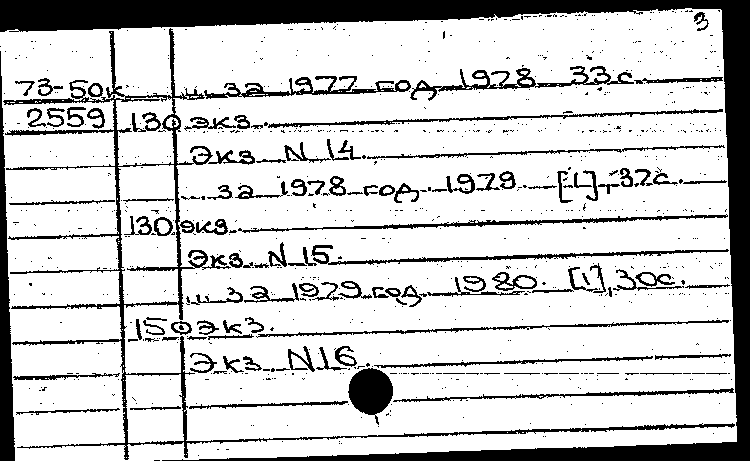 3
73-50к ... за 1977 год 1978 33с.
2559 130 экз.
Экз N 14
... за 1978 год. 1979. [1], 37с.
130 экз.
Экз. N 15.
... за 1979 год. 1980. [1], 30с.
150 экз.
Экз N16.